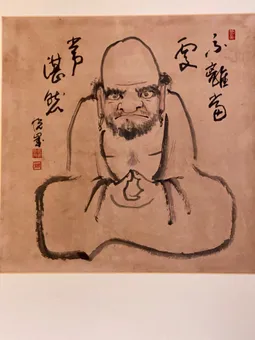 不離當
處
常
湛然